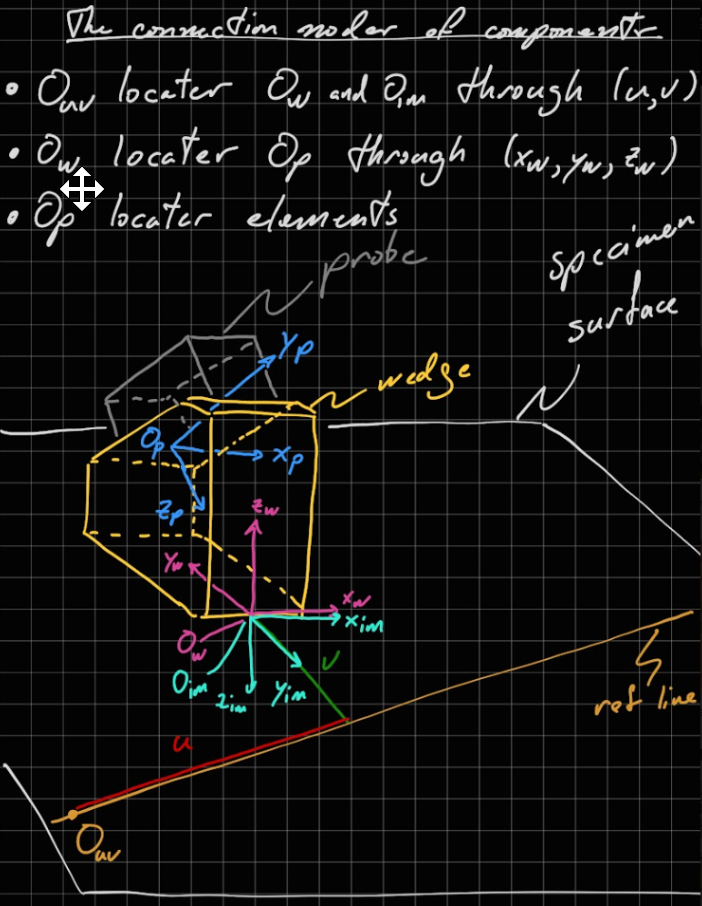 The connection nodes of components
• Ouv locates Ow and Oim through (u,v)
• Ow locates Op through (xw, yw, zw)
• Op locates elements
probe
specimen
surface
yp
wedge
Op
xp
zp
zw
yw
xw
xim
Ow
Oim
zim
yim
v
ref line
u
Ouv